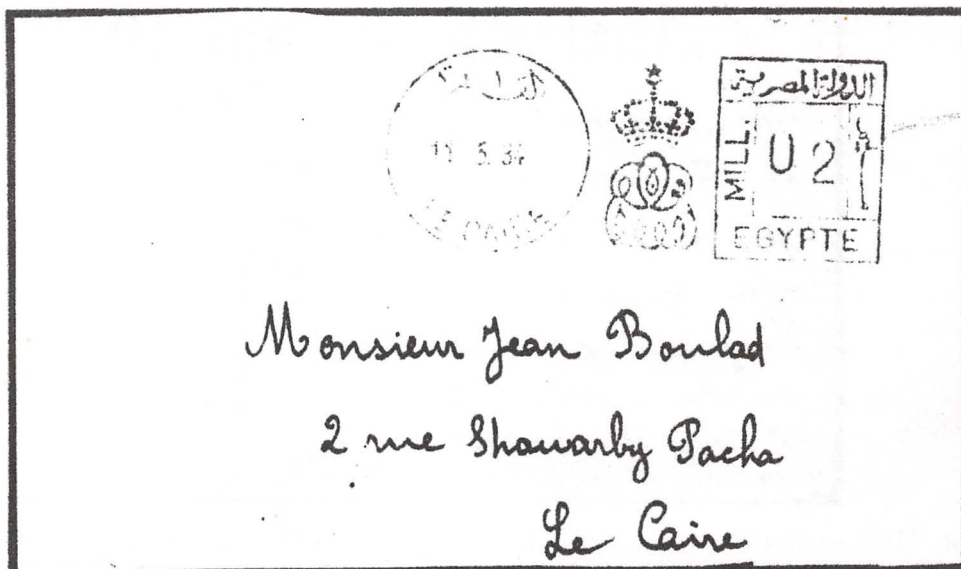 القاهرة
LE CAIRE
الدولة المصرية
MILL.
U 2
مليم
EGYPTE
Monsieur Jean Boulad
2 rue Shawarby Pacha
Le Caire